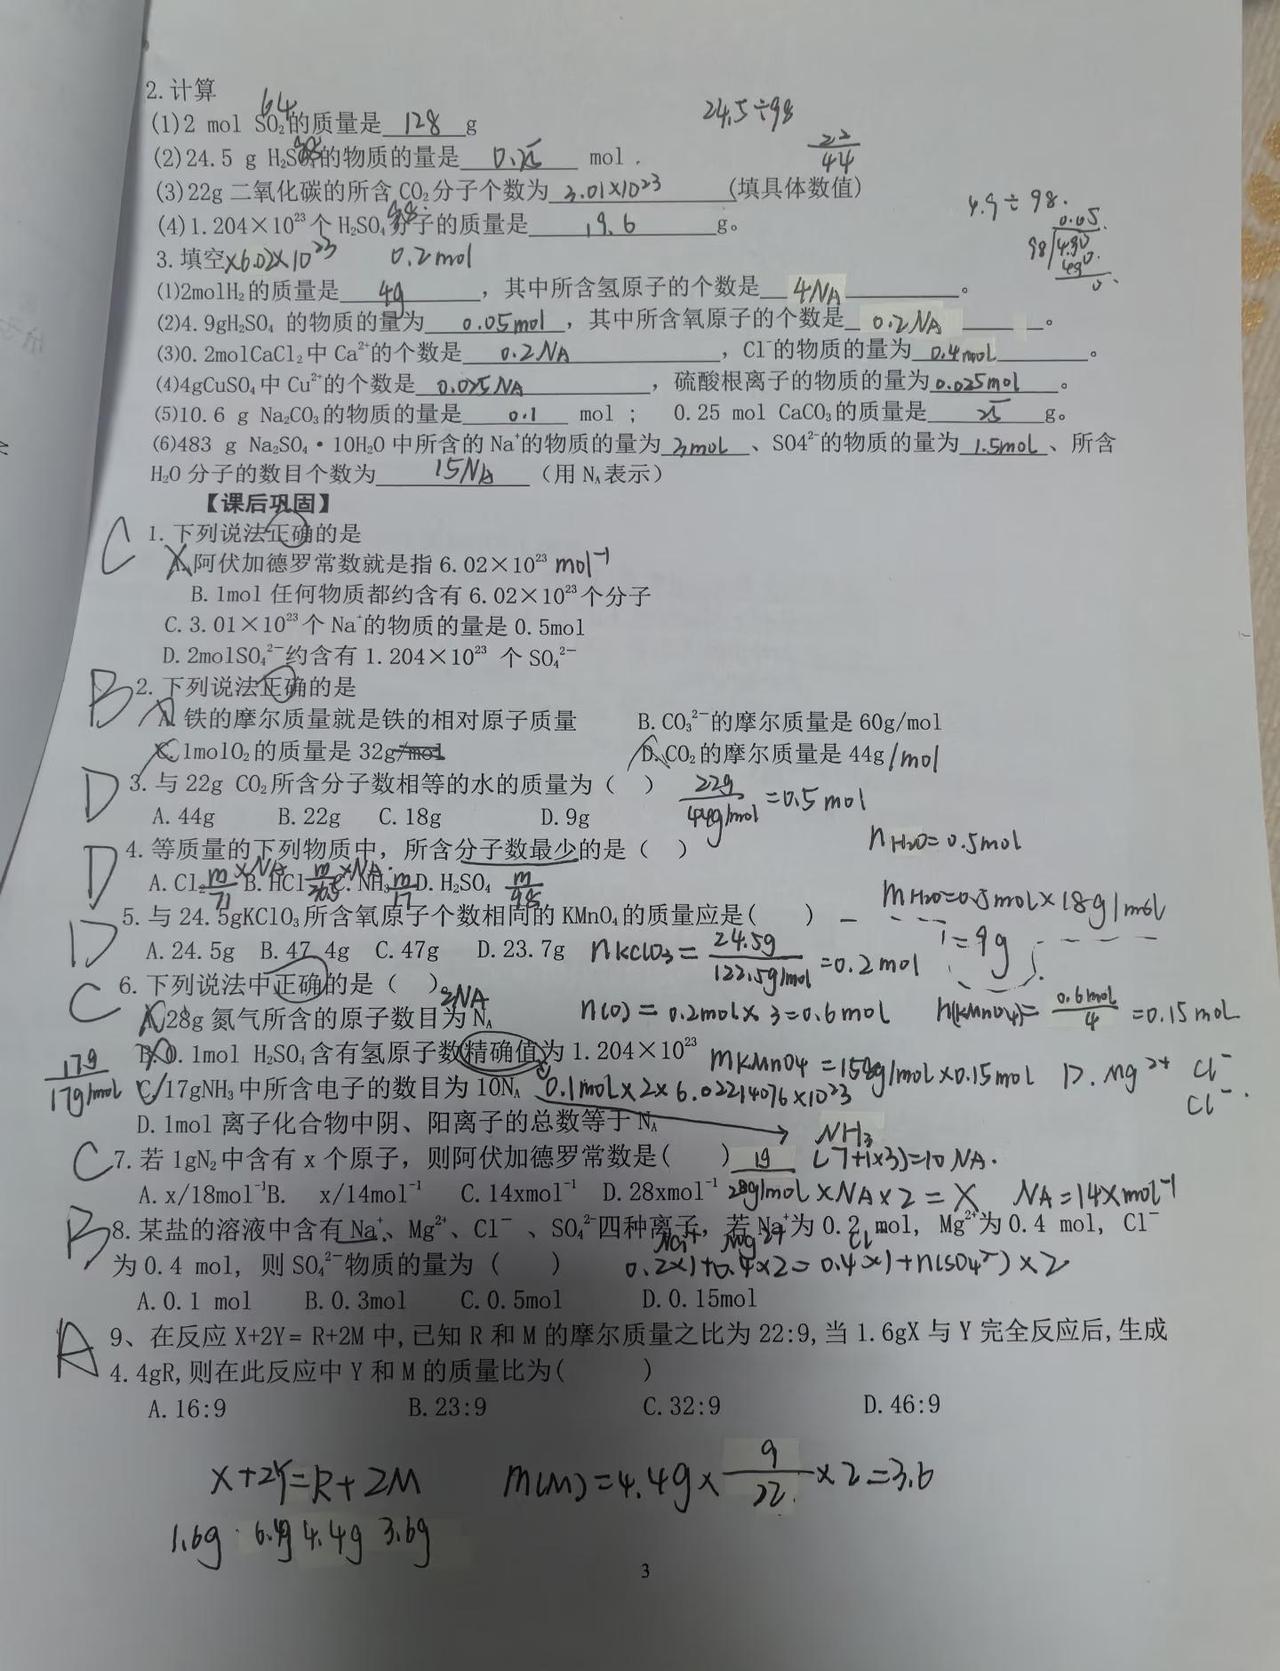 2.计算
64
24.5÷98
(1)2 mol SO₂的质量是 128 g
22
44
(2)24.5 g H₂SO₄的物质的量是 0.25 mol .
(3)22g 二氧化碳的所含 CO₂分子个数为 3.01×10²³ (填具体数值)
4.9÷98.
(4)1.204×10²³个 H₂SO₄分子的质量是 19.6 g。
98
0.05
98 4.90
490
0
3.填空 ×6.02×10²³ 0.2mol
(1)2molH₂的质量是 4g ，其中所含氢原子的个数是 4NA 。
(2)4.9gH₂SO₄ 的物质的量为 0.05mol ，其中所含氧原子的个数是 0.2NA 。
(3)0.2molCaCl₂中 Ca²⁺的个数是 0.2NA ，Cl⁻的物质的量为 0.4mol 。
(4)4gCuSO₄中 Cu²⁺的个数是 0.025NA ，硫酸根离子的物质的量为 0.025mol 。
(5)10.6 g Na₂CO₃的物质的量是 0.1 mol ； 0.25 mol CaCO₃的质量是 25 g。
(6)483 g Na₂SO₄·10H₂O 中所含的 Na⁺的物质的量为 3mol 、SO4²⁻的物质的量为 1.5mol 、所含
H₂O 分子的数目个数为 15NA （用 Nₐ表示）
【课后巩固】
C 1.下列说法正确的是
A.阿伏加德罗常数就是指 6.02×10²³ mol⁻¹
B.1mol 任何物质都约含有 6.02×10²³个分子
C.3.01×10²³个 Na⁺的物质的量是 0.5mol
D.2molSO₄²⁻约含有 1.204×10²³ 个 SO₄²⁻
B 2.下列说法正确的是
A.铁的摩尔质量就是铁的相对原子质量 B.CO₃²⁻的摩尔质量是 60g/mol
C.1molO₂的质量是 32g/mol D.CO₂的摩尔质量是 44g/mol
D 3.与 22g CO₂所含分子数相等的水的质量为（ ） 22g/44g/mol =0.5mol
A.44g B.22g C.18g D.9g
nH₂O=0.5mol
D 4.等质量的下列物质中，所含分子数最少的是（ ）
×NA ×NA
A.Cl₂ m/71 B.HCl m/36.5 C.NH₃ m/17 D.H₂SO₄ m/98
mH₂O=0.5mol×18g/mol
D 5.与 24.5gKClO₃所含氧原子个数相同的 KMnO₄的质量应是( )
=9g
A.24.5g B.47.4g C.47g D.23.7g nKClO₃= 24.5g/122.5g/mol =0.2mol
C 6.下列说法中正确的是（ ）
2NA
A.28g 氮气所含的原子数目为 Nₐ n(O)=0.2mol×3=0.6mol n(KMnO₄)= 0.6mol/4 =0.15mol
B.0.1mol H₂SO₄含有氢原子数精确值为 1.204×10²³ mKMnO₄=158g/mol×0.15mol D.Mg²⁺ Cl⁻
Cl⁻
17g/17g/mol C.17gNH₃中所含电子的数目为 10Nₐ 0.1mol×2×6.02214076×10²³
D.1mol 离子化合物中阴、阳离子的总数等于 Nₐ
NH₃
(7+1×3)=10NA.
C 7.若 1gN₂中含有 x 个原子，则阿伏加德罗常数是( )
A.x/18mol⁻¹B. x/14mol⁻¹ C.14xmol⁻¹ D.28xmol⁻¹ 1g/28g/mol ×NA×2=X NA=14×mol⁻¹
B 8.某盐的溶液中含有 Na⁺、Mg²⁺、Cl⁻ 、SO₄²⁻四种离子，若 Na⁺为 0.2 mol, Mg²⁺为 0.4 mol, Cl⁻
Na⁺ Mg²⁺ Cl
为 0.4 mol, 则 SO₄²⁻物质的量为（ ） 0.2×1+0.4×2=0.4×1+n(SO₄²⁻)×2
A.0.1 mol B.0.3mol C.0.5mol D.0.15mol
A 9、在反应 X+2Y= R+2M 中,已知 R 和 M 的摩尔质量之比为 22:9,当 1.6gX 与 Y 完全反应后,生成
4.4gR,则在此反应中 Y 和 M 的质量比为( )
A.16:9 B.23:9 C.32:9 D.46:9
X+2Y=R+2M m(M)=4.4g× 9/22 ×2=3.6
1.6g 6.4g 4.4g 3.6g
3